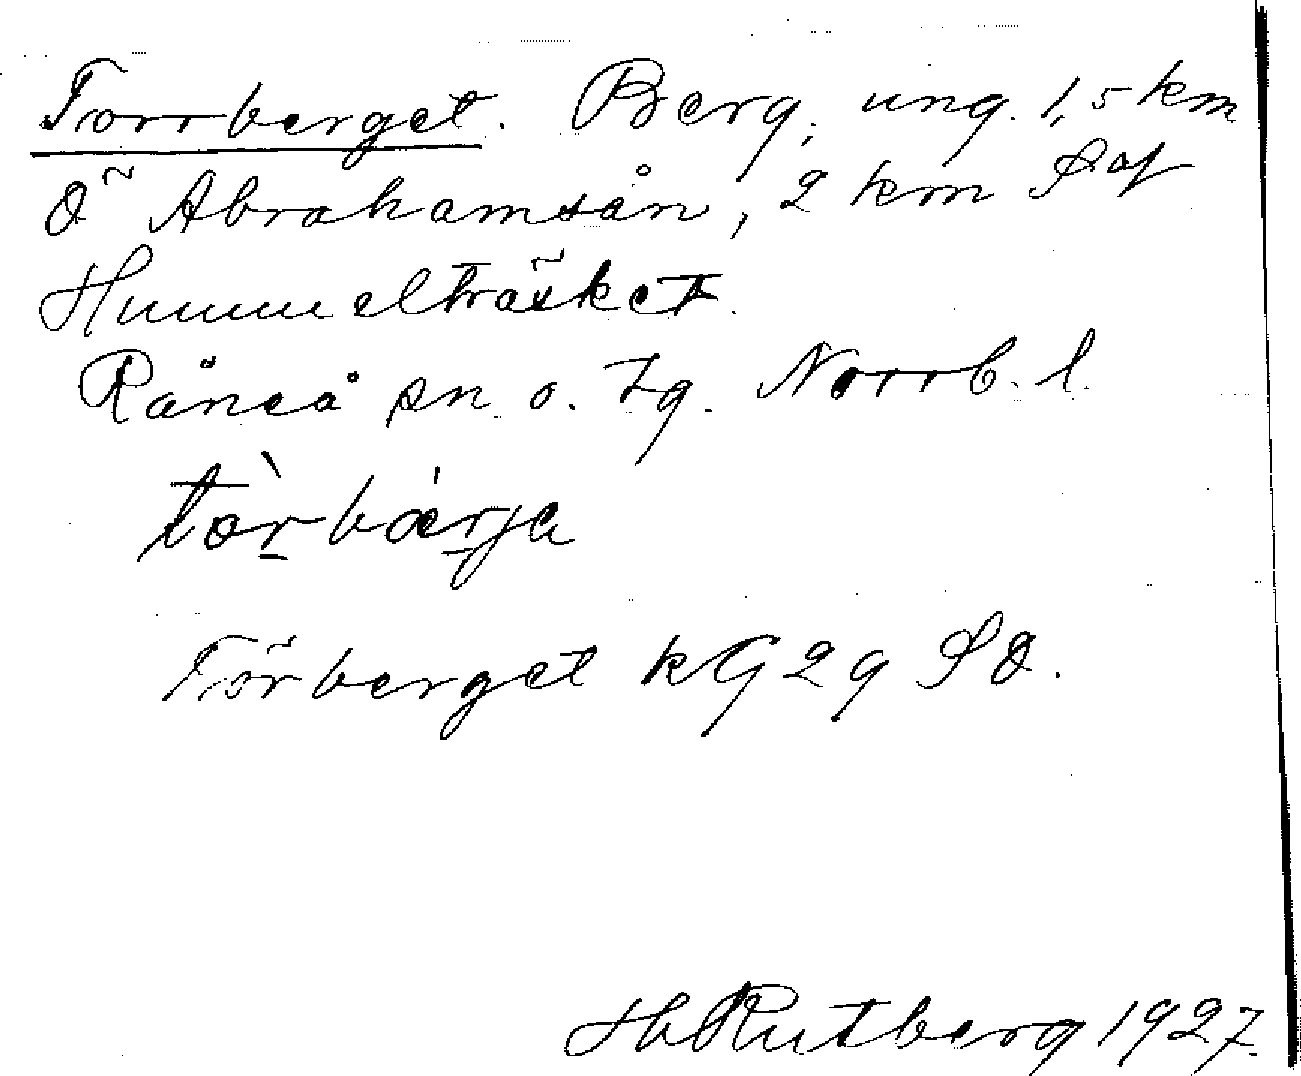 Torrberget. Berg, ung. 1,5 km
Ö Abrahamsån, 2 km S af
Hummelträsket.
Råneå sn o. tg. Norrb. l.
tòrbá̀rja
Törberget kG 29 SO.
Hb Rutberg 1927.